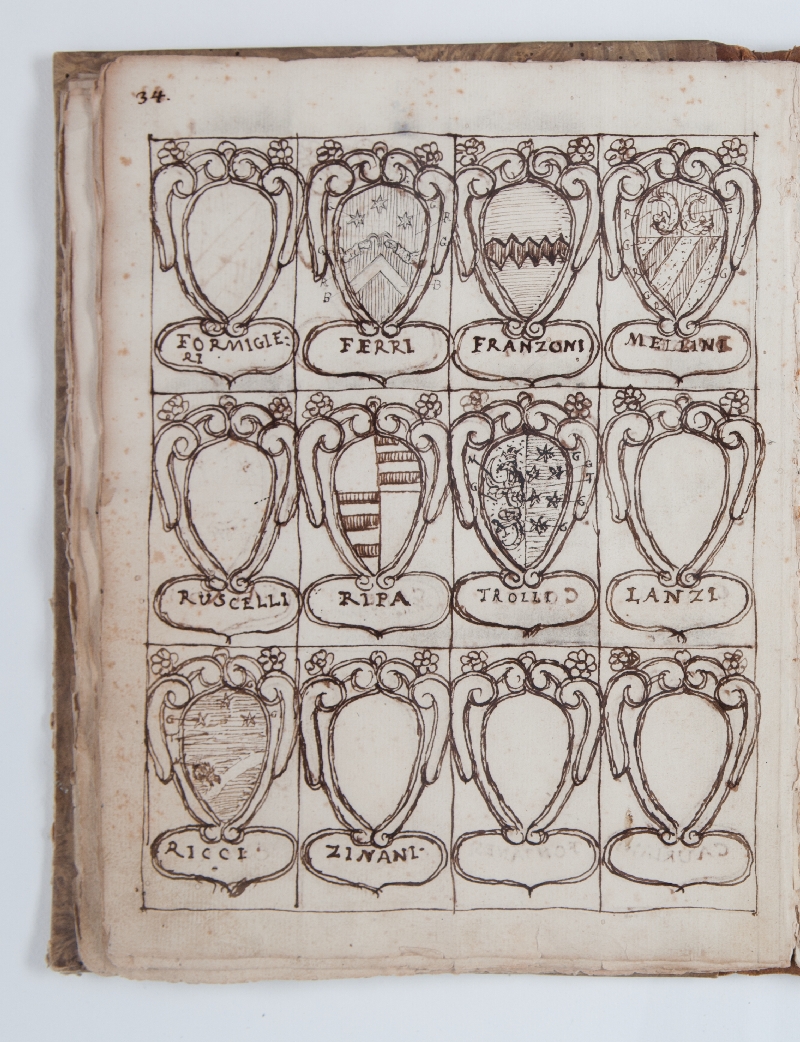 34.
FORMIGLE:
RI
FERRI
FRANZONI
MELLINI
RUSCELLI
RIPA
TROLLI
LANZI
RICCI
ZINANI